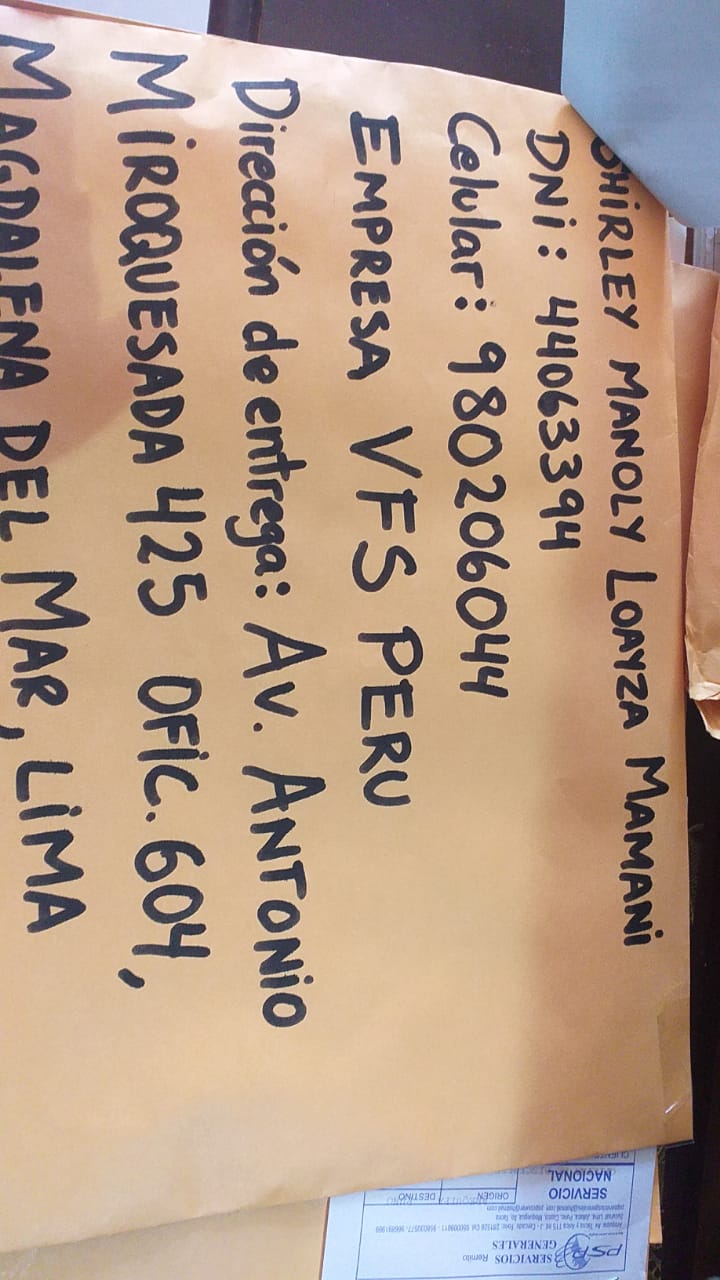 SHIRLEY MANOLY LOAYZA MAMANI
DNi: 44063394
Celular: 980206044
EMPRESA VFS PERU
Dirección de entrega: Av. ANTONiO
MiROQUESADA 425 OFiC. 604,
MAGDALENA DEL MAR, LiMA
PSR SERVICIOS GENERALES Remito
SERVICIO NACIONAL
ORIGEN
DESTINO
CLIENTE